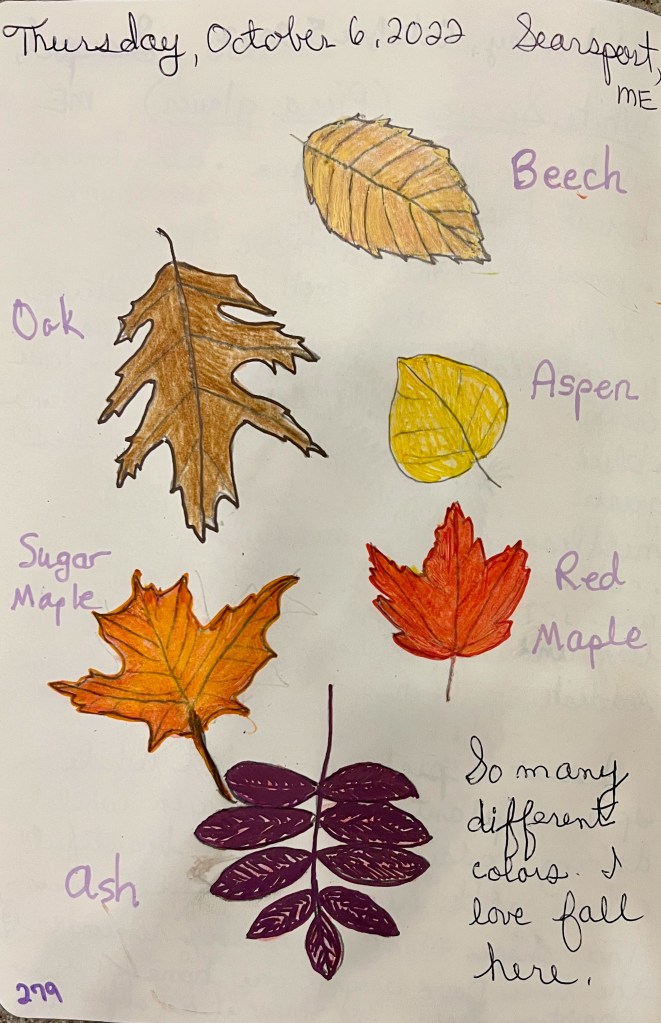 Thursday, October 6, 2022 Searsport,
ME
Beech
Oak
Aspen
Sugar
Maple
Red
Maple
Ash
So many
different
colors. I
love fall
here.
279